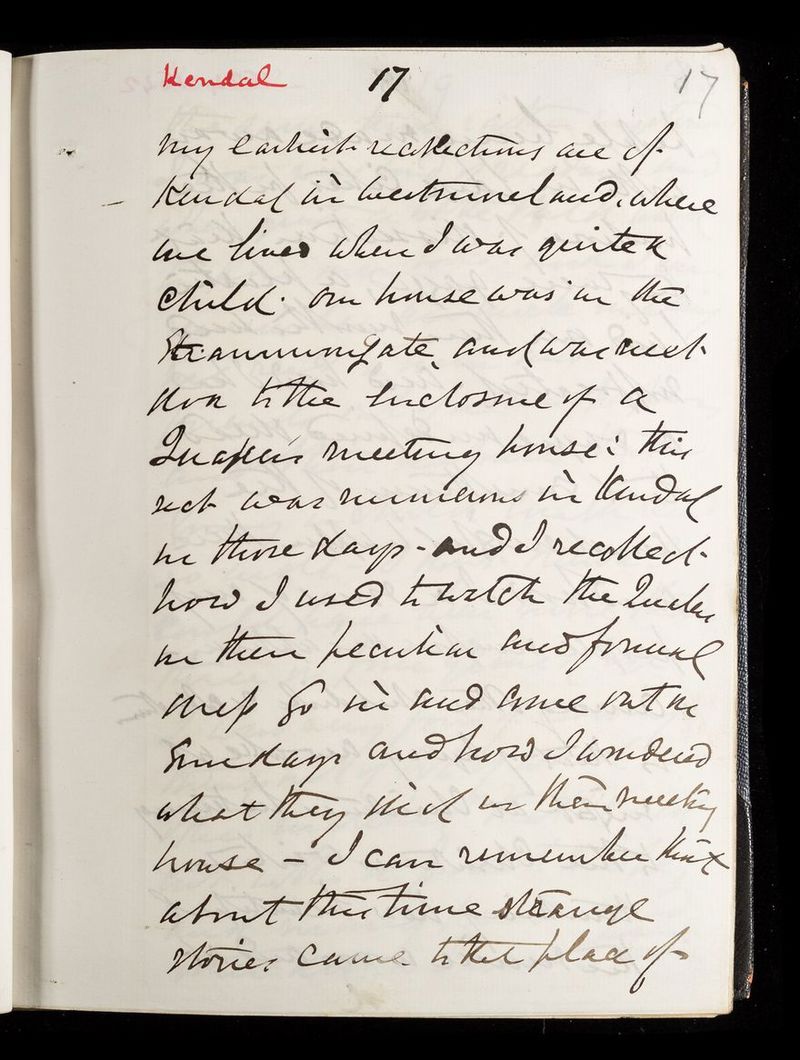 Kendal 17 17
my earliest recollections are of
Kendal in Westmoreland, where
we lived when I was quite a
child. our house was in the
Strammongate, and was next
door to the enclosure of a
Quaker's meeting house: this
sect was numerous in Kendal
in those days - and I recollect
how I used to watch the Quakers
in their peculiar and formal
dress go in and come out on
Sundays and how I wondered
what they did in their meeting
house - I can remember that
about this time strange
stories came to the place of